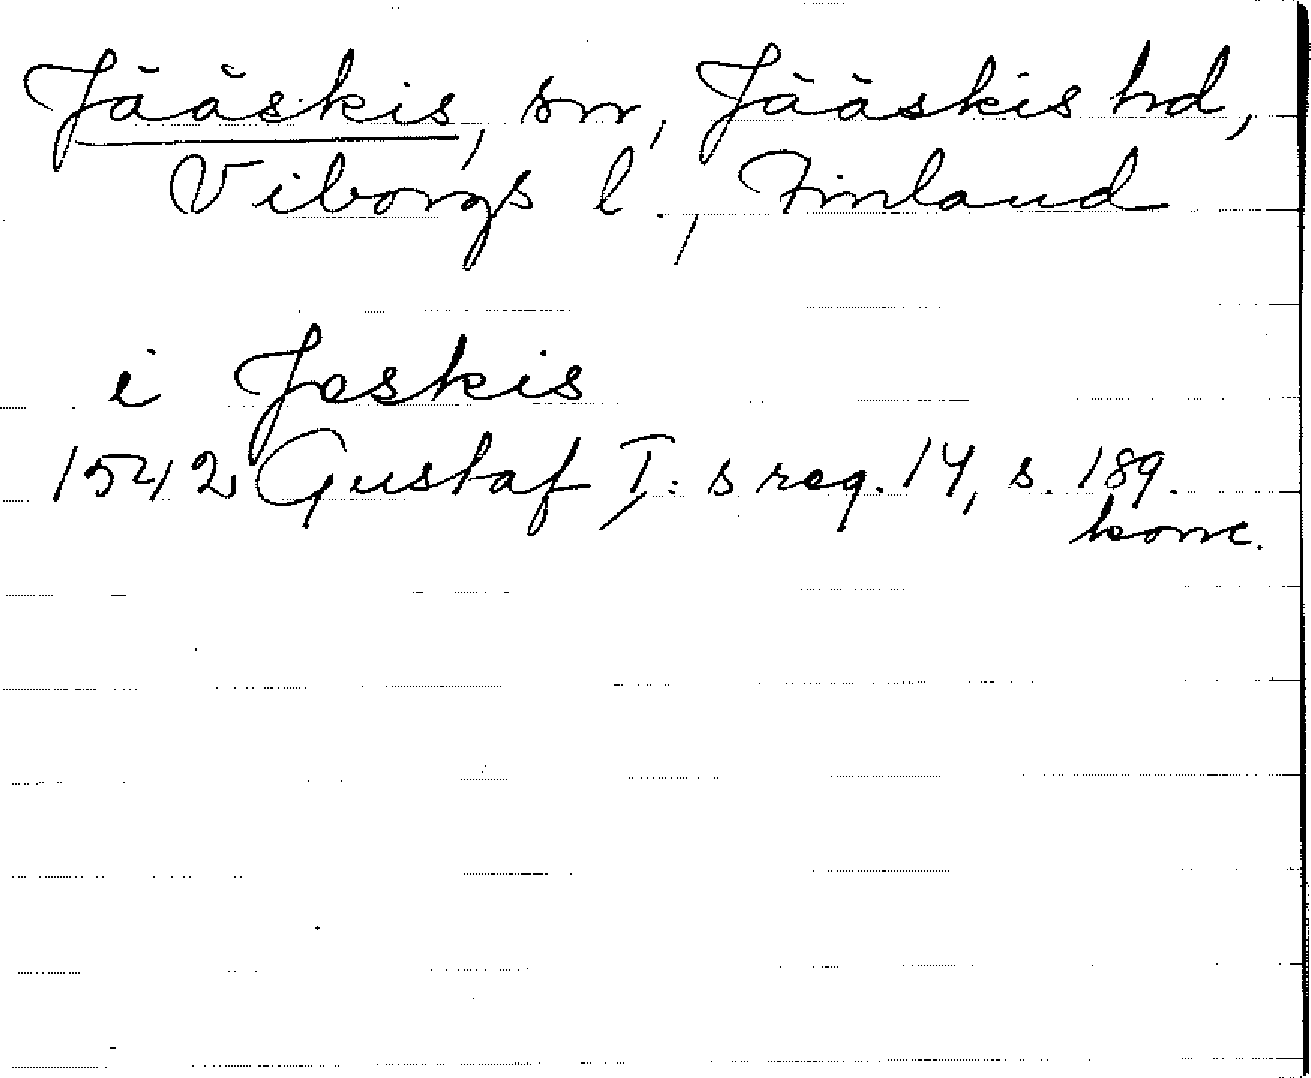 Jääskis, sn, Jääskis hd,
Viborgs l., Finland
i Jeskis
1542 Gustaf I:s reg. 14, s. 189.
konc.